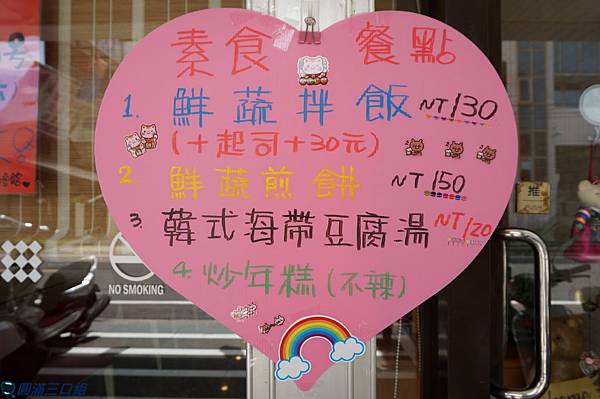 素食 餐點
1. 鮮蔬拌飯 NT130
(+起司+30元)
2. 鮮蔬煎餅 NT150
3. 韓式海帶豆腐湯 NT120
4. 炒年糕(不辣)
NO SMOKING
推
圓滿三口組